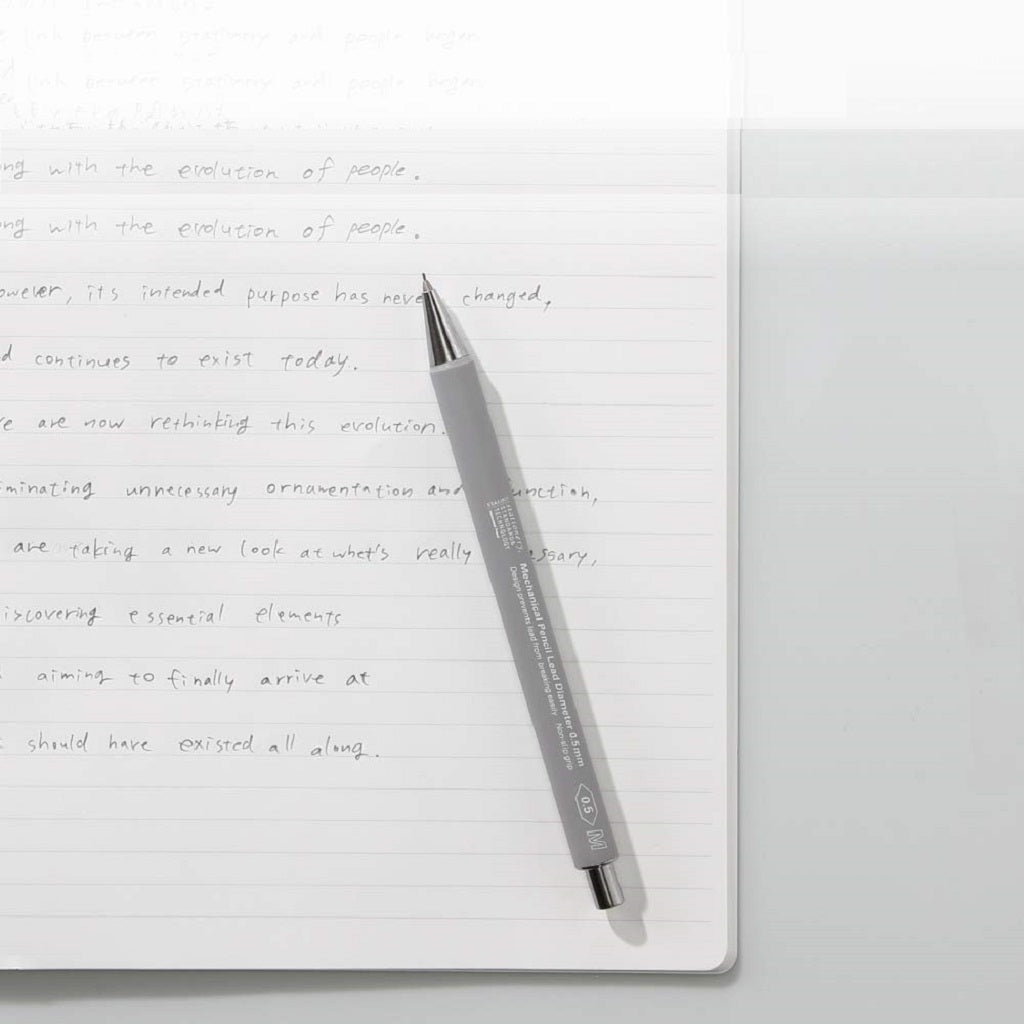 link between stationery and people began
link between stationery and people began
ng with the evolution of people.
ng with the evolution of people.
owever, its intended purpose has never changed,
d continues to exist today.
e are now rethinking this evolution.
minating unnecessary ornamentation and unction,
are taking a new look at whet's really ssary,
iscovering essential elements
aiming to finally arrive at
should have existed all along.
stationery
STANDARD
TECHNOLOGY
Mechanical Pencil Lead Diameter 0.5mm
Design prevents lead from breaking easily Non-slip grip
0.5
M